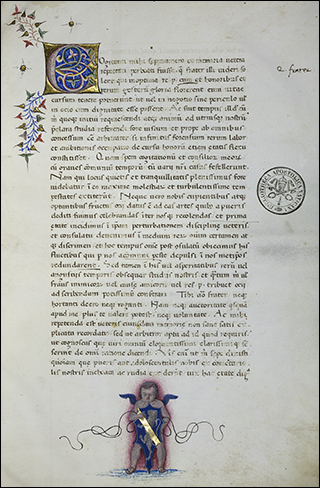 Cogitanti mihi sepenumero et memoria vetera
repetenti perbeati fuisse q frater illi videri so
lent qui in optima re p cum et honoribus et
rerum gestarū gloria florerent eum vitae
cursum tenere potuerunt ut vel in negotio sine periculo vel
in otio cum dignitate esse possent Ac fuit tempus illud
quoque initium requiescendi atque animū ad utriusq nostrū
preclara studia referendi fore iustum et prope ab omnibus
concessum arbitrarer si infinitus forensium rerum labor
et ambitionis occupatio decursu honorū etiam etatis flexu
constitisset Quam spem cogitationū et consiliorū meorū
cū graves communiū temporū tū varii nostri casus fefellerunt
Nam qui locus quietis et tranquillitatis plenissimus fore
videbatur in eo maxime molestiarū et turbulentissime tem
pestates extiterunt Neque vero nobis cupientibus atque
optantibus fructus otii datus est ad eas artes quibus a pueris
dediti fuimus celebrandas inter nosq recolendas Nam prima
etate incidimus in ipsam perturbationem discipline veteris
et consulatu devenimus in mediū rerū omniū certamen atq
discrimen et hoc tempus omne post consulatū obiecimus his
fluctibus qui per nos a communi peste depulsi in nos metipsos
redundarunt Sed tamen in his vel asperitatibus rerū vel
angustiis temporis obsequar studiis nostris et quantum
fraus inimicorū vel cause amicorū vel res p tribuet ocii
ad scribendum potissimū conferam Tibi vero frater neq
hortanti deero neq roganti Nam neq auctoritate quisquam
apud me plus te valere potest neq voluntate Ac mihi
repetenda est veteris cuiusdam memorie non sane satis ex
plicata recordatio sed ut arbitror apta ad id quod requiris
ut cognoscas que viri omniū eloquentissimi clarissimiq sen
serint de omni ratione dicendi Vis enim ut mihi sepe dixisti
quoniam que pueris aut adolescentulis nobis ex commentario
lis nostris inchoata ac rudia exciderunt vix hac etate dig